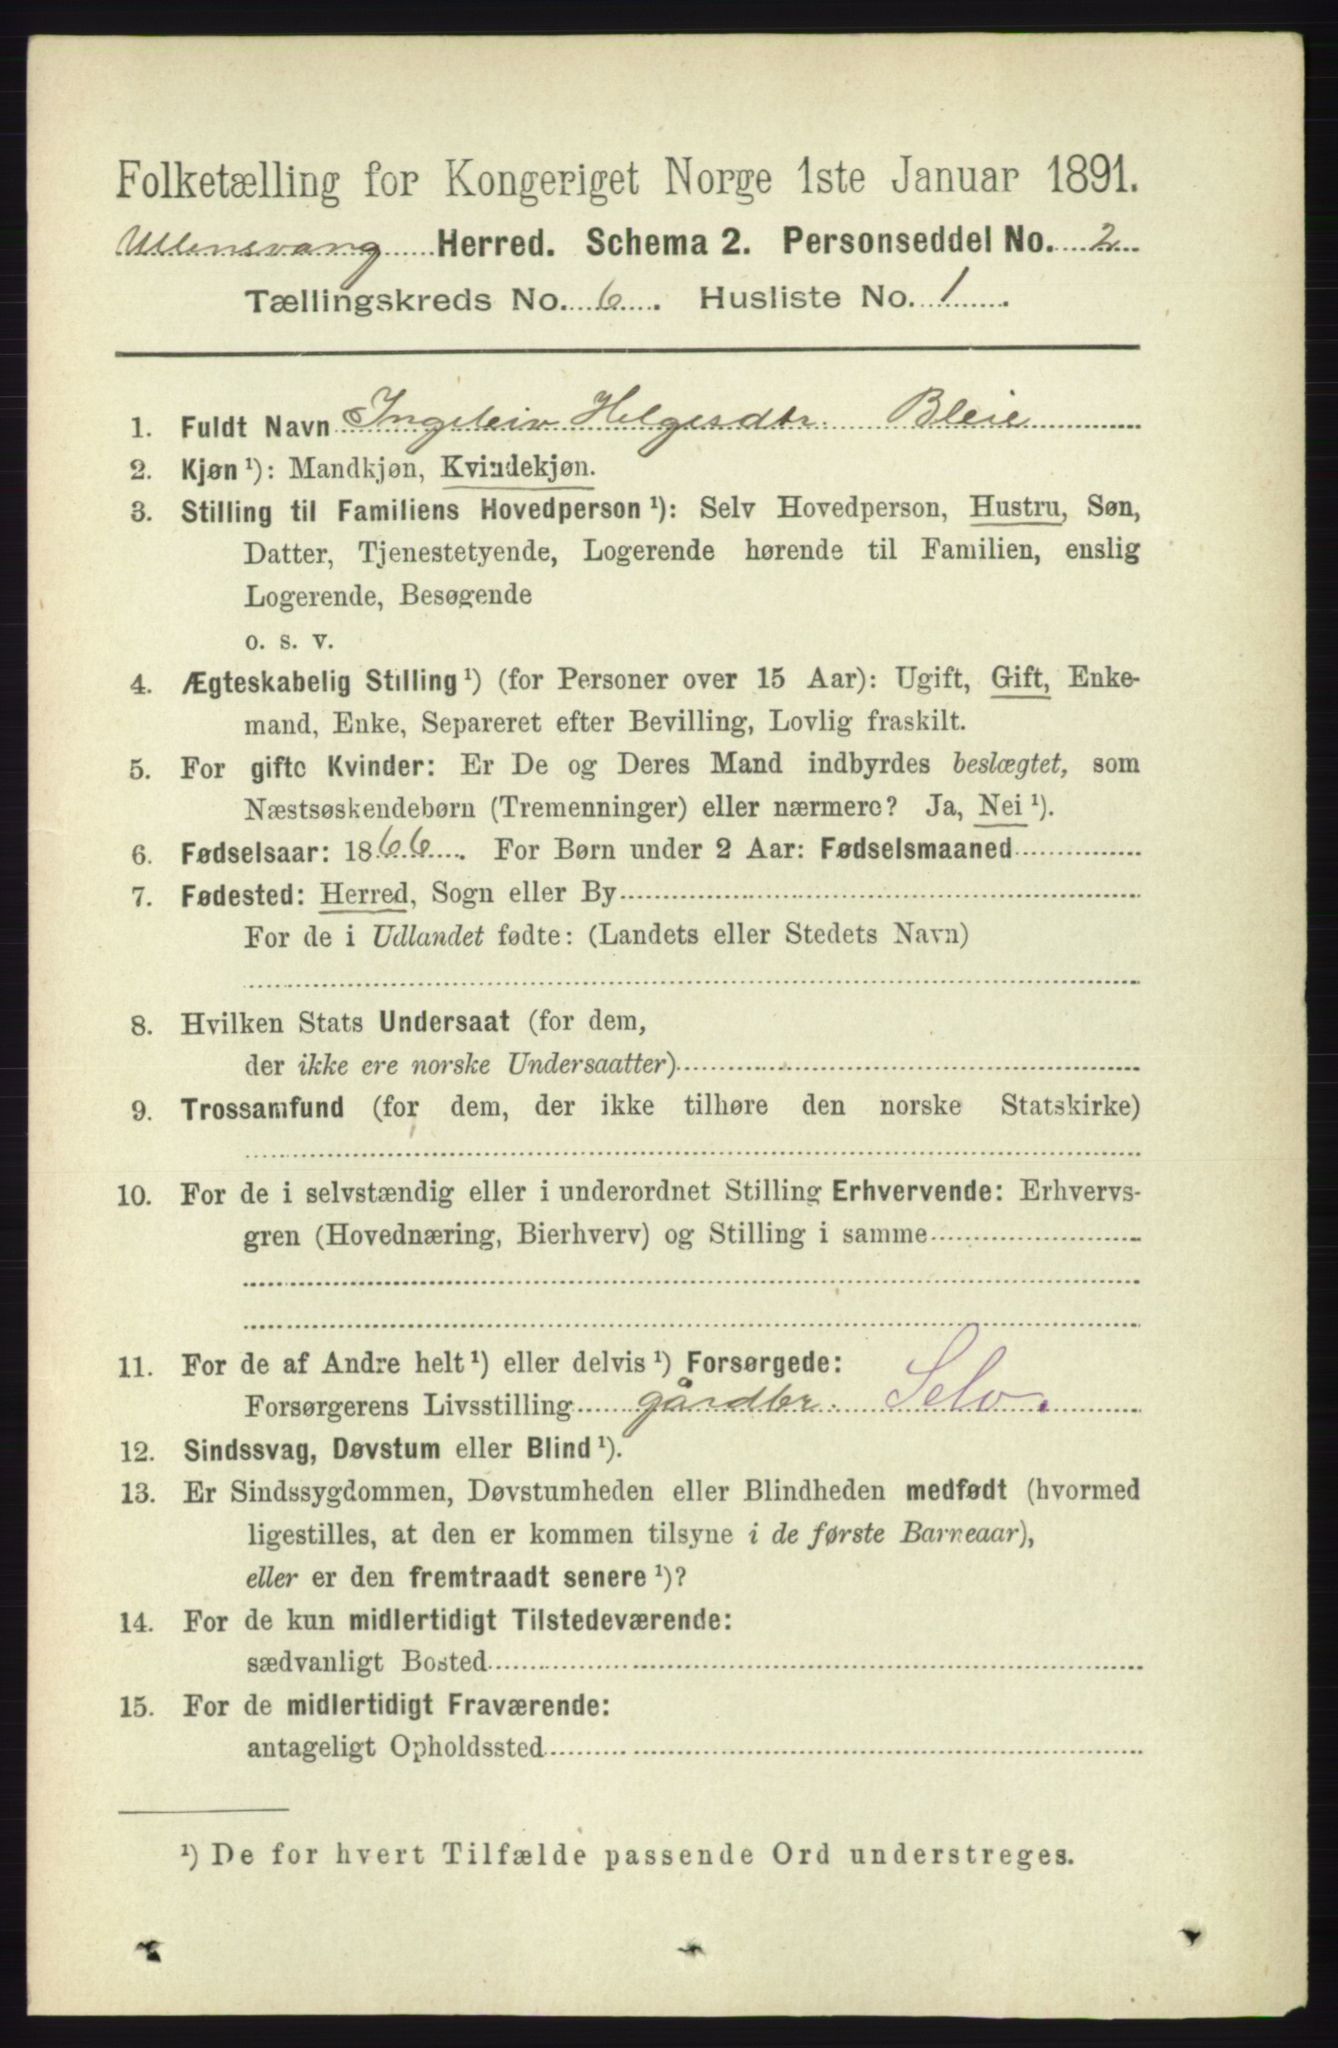 Folketælling for Kongeriget Norge 1ste Januar 1891.
Ullensvang Herred. Schema 2. Personseddel No. 2
Tællingskreds No. 6. Husliste No. 1.
1. Fuldt Navn Ingeleiv Helgesdtr. Bleie
2. Kjøn ¹): Mandkjøn, Kvindekjøn.
3. Stilling til Familiens Hovedperson ¹): Selv Hovedperson, Hustru, Søn,
Datter, Tjenestetyende, Logerende hørende til Familien, enslig
Logerende, Besøgende
o. s. v.
4. Ægteskabelig Stilling ¹) (for Personer over 15 Aar): Ugift, Gift, Enke-
mand, Enke, Separeret efter Bevilling, Lovlig fraskilt.
5. For gifte Kvinder: Er De og Deres Mand indbyrdes beslægtet, som
Næstsøskendebørn (Tremenninger) eller nærmere? Ja, Nei ¹).
6. Fødselsaar: 1866. For Børn under 2 Aar: Fødselsmaaned
7. Fødested: Herred, Sogn eller By
For de i Udlandet fødte: (Landets eller Stedets Navn)
8. Hvilken Stats Undersaat (for dem,
der ikke ere norske Undersaatter)
9. Trossamfund (for dem, der ikke tilhøre den norske Statskirke)
10. For de i selvstændig eller i underordnet Stilling Erhvervende: Erhvervs-
gren (Hovednæring, Bierhverv) og Stilling i samme
11. For de af Andre helt ¹) eller delvis ¹) Forsørgede:
Forsørgerens Livsstilling gårdbr. Selv.
12. Sindssvag, Døvstum eller Blind ¹).
13. Er Sindssygdommen, Døvstumheden eller Blindheden medfødt (hvormed
ligestilles, at den er kommen tilsyne i de første Barneaar),
eller er den fremtraadt senere ¹)?
14. For de kun midlertidigt Tilstedeværende:
sædvanligt Bosted
15. For de midlertidigt Fraværende:
antageligt Opholdssted
¹) De for hvert Tilfælde passende Ord understreges.